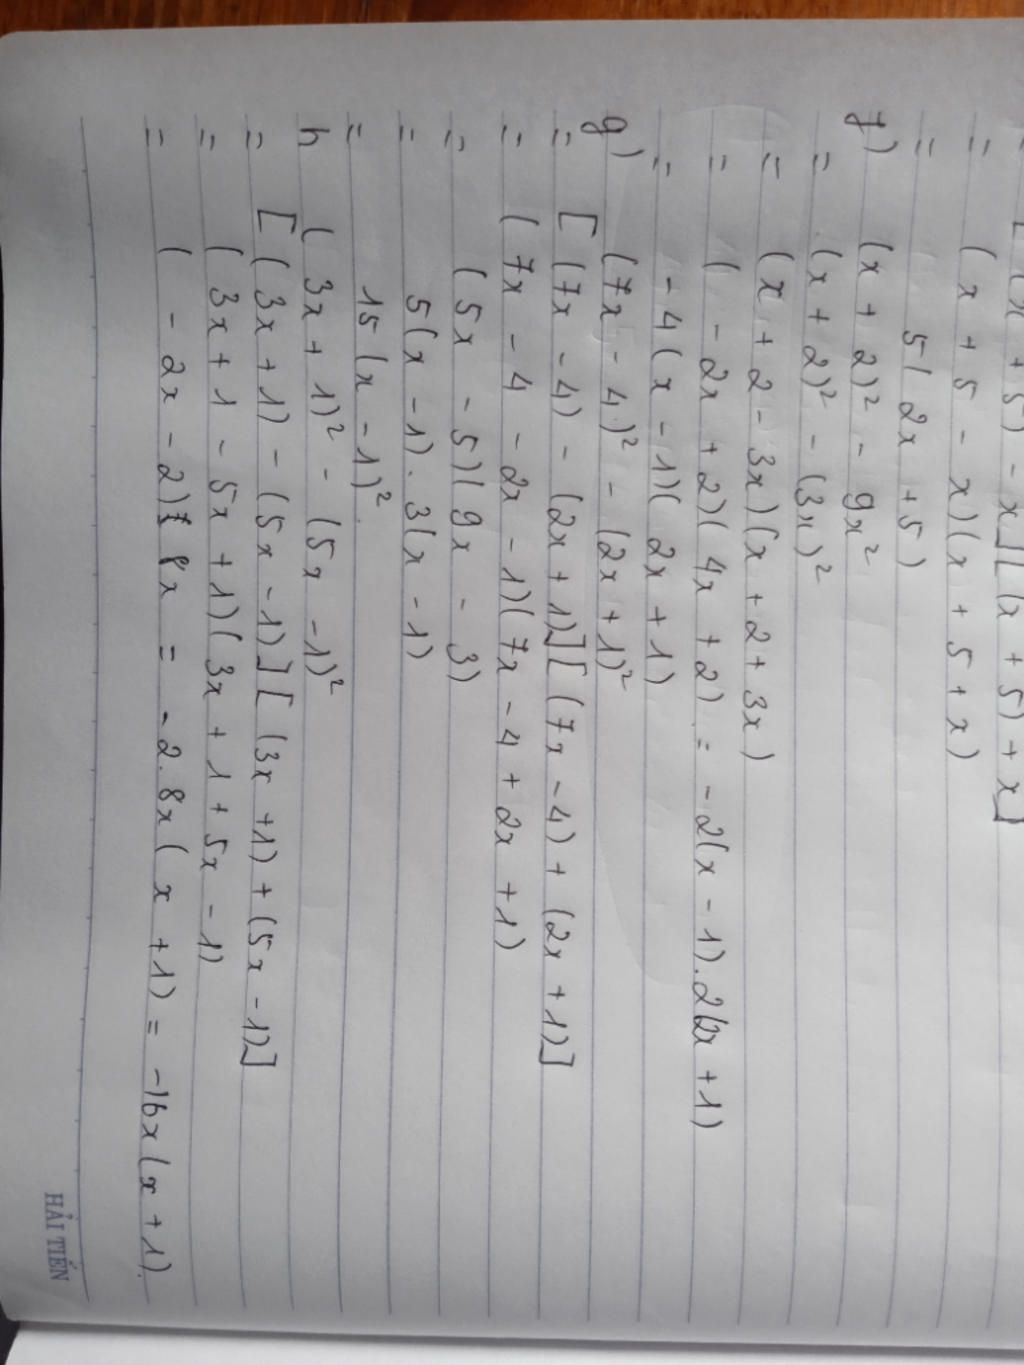 [(x + 5) - x][(x + 5) + x]
= (x + 5 - x)(x + 5 + x)
= 5(2x + 5)
f) (x + 2)² - 9x²
= (x + 2)² - (3x)²
= (x + 2 - 3x)(x + 2 + 3x)
= (-2x + 2)(4x + 2) = -2(x - 1).2(2x + 1)
= -4(x - 1)(2x + 1)
g) (7x - 4)² - (2x + 1)²
= [(7x - 4) - (2x + 1)][(7x - 4) + (2x + 1)]
= (7x - 4 - 2x - 1)(7x - 4 + 2x + 1)
= (5x - 5)(9x - 3)
= 5(x - 1).3(x - 1)
= 15(x - 1)².
h (3x + 1)² - (5x - 1)²
= [(3x + 1) - (5x - 1)][(3x + 1) + (5x - 1)]
= (3x + 1 - 5x + 1)(3x + 1 + 5x - 1)
= (-2x - 2) 8x = -2.8x(x + 1) = -16x(x + 1).
HẢI TIẾN